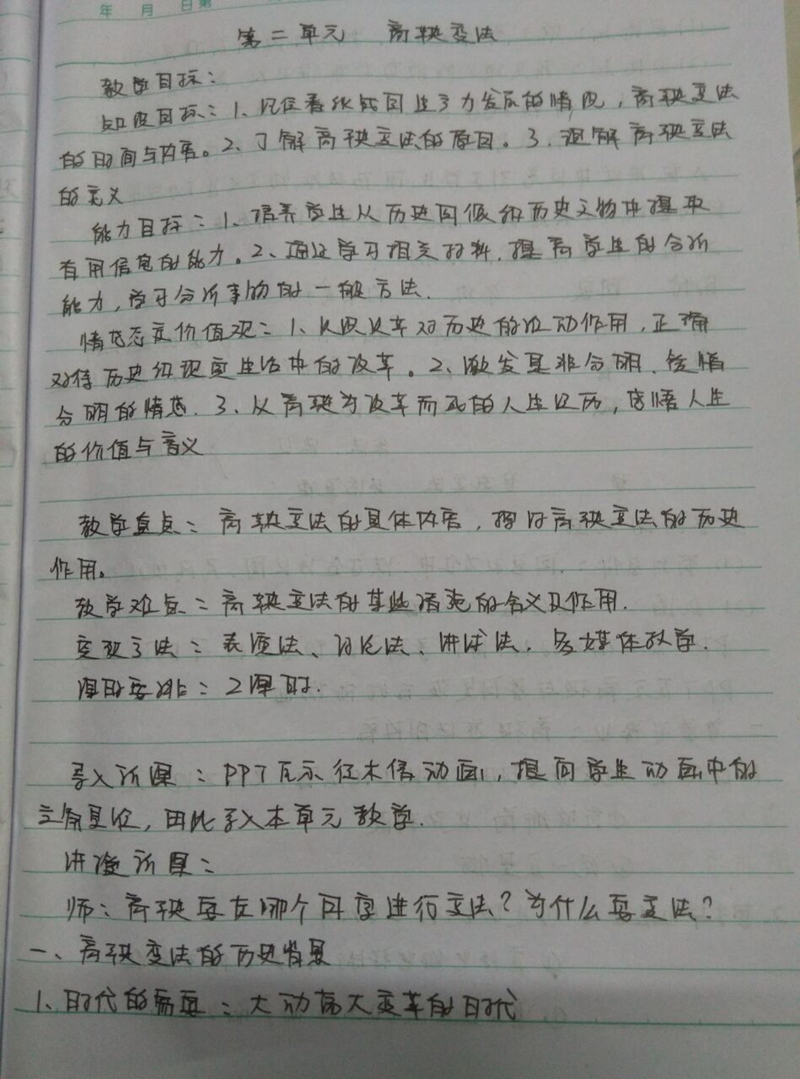 年 月 日第
第二单元 商鞅变法
教学目标：
知识目标：1、记住春秋战国生产力发展的情况，商鞅变法
的时间与内容。2、了解商鞅变法的原因。3、理解商鞅变法
的意义
能力目标：1、培养学生从历史图像和历史文物中提取
有用信息的能力。2、通过学习相关材料，提高学生的分析
能力，学习分析事物的一般方法.
情感态度价值观：1、认识改革对历史的推动作用，正确
对待历史和现实生活中的改革。2、激发是非分明、爱憎
分明的情感. 3、从商鞅为改革而死的人生经历，感悟人生
的价值与意义
教学重点：商鞅变法的具体内容，探讨商鞅变法的历史
作用。
教学难点：商鞅变法的某些措施的含义及作用.
教法：表演法、讨论法、讲述法，多媒体教学.
课时安排：2课时.
导入新课：PPT展示徙木信动画，提问学生动画中的
，由此导入本单元教学.
讲授新课：
师：商鞅要在哪个国家进行变法？为什么要变法？
一、商鞅变法的历史背景
1、时代的需要：大动荡大变革的时代